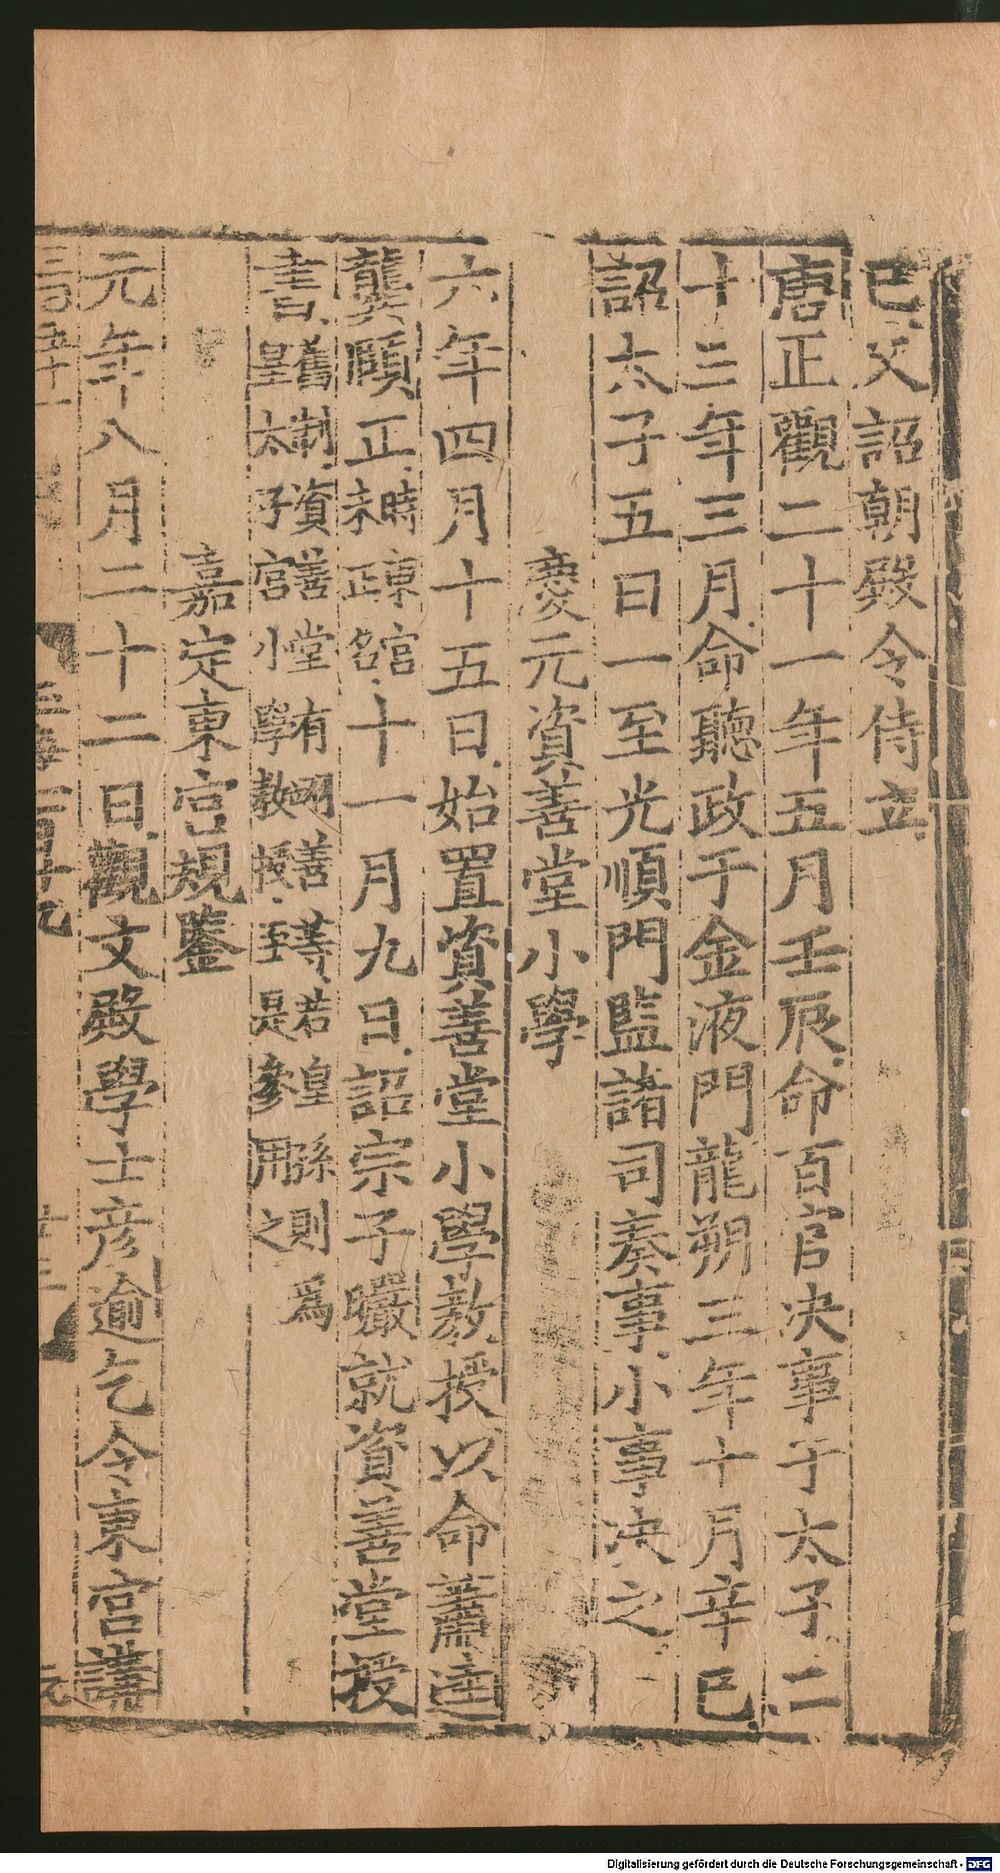 已又詔朝殿令侍立
唐正觀二十一年五月壬辰命百官決事于太子二
十三年三月命聽政于金液門龍朔三年十月辛巳
詔太子五日一至光順門監諸司奏事小事決之
慶元資善堂小學
六年四月十五日始置資善堂小學教授以命蕭逵
龔頤正時東官未正名十一月九日詔宗子曮就資善堂授
書舊制資善堂有翊善等若皇孫則爲皇太子宮小學教授至是參用之
嘉定東宮規鑒
元年八月二十二日觀文殿學士彦逾乞令東宮講
Digitalisierung gefördert durch die Deutsche Forschungsgemeinschaft - DFG